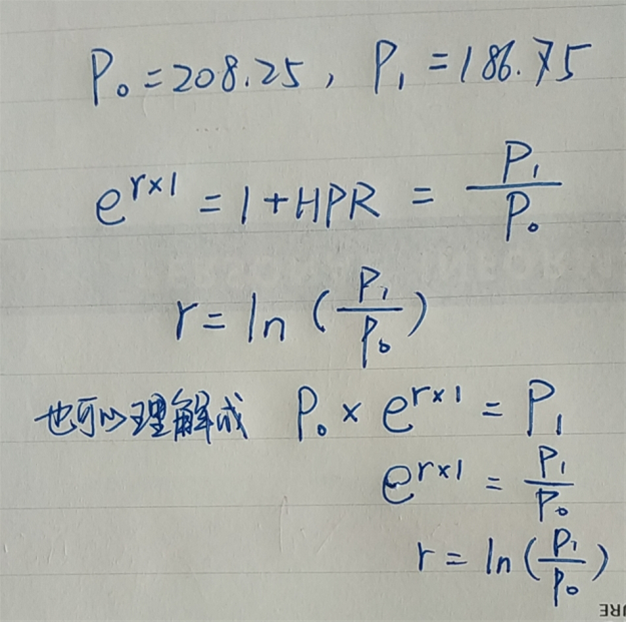 P₀ = 208.25, P₁ = 186.75
e^{r×1} = 1 + HPR = \frac{P₁}{P₀}
r = ln (\frac{P₁}{P₀})
也可以理解成 P₀ × e^{r×1} = P₁
e^{r×1} = \frac{P₁}{P₀}
r = ln (\frac{P₁}{P₀})